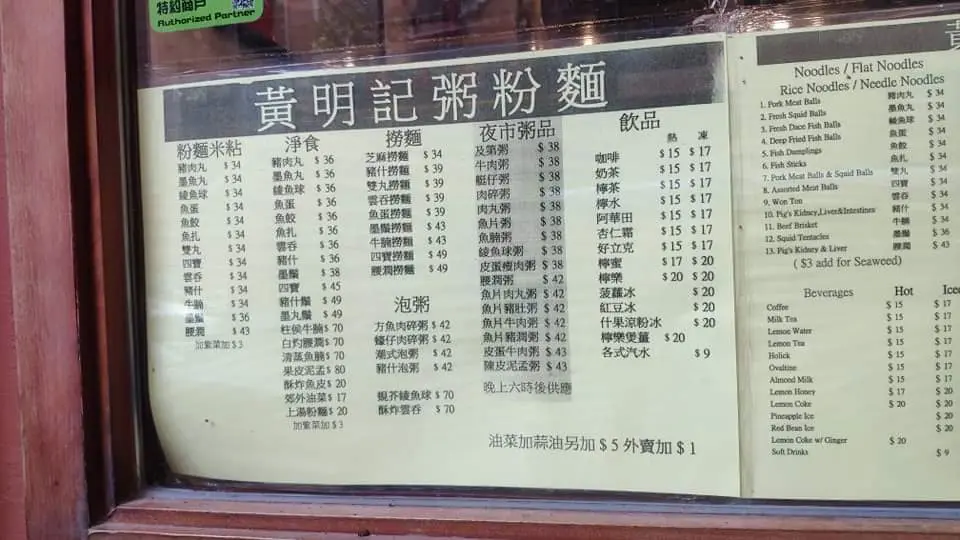 特約商戶
Authorized Partner
黃明記粥粉麵
粉麵米粘
豬肉丸 $ 34
墨魚丸 $ 34
鯪魚球 $ 34
魚蛋 $ 34
魚餃 $ 34
魚扎 $ 34
雙丸 $ 34
四寶 $ 34
雲吞 $ 34
豬什 $ 34
牛腩 $ 34
墨鬚 $ 36
腰潤 $ 43
加紫菜加 $ 3
淨食
豬肉丸 $ 36
墨魚丸 $ 36
鯪魚球 $ 36
魚蛋 $ 36
魚餃 $ 36
魚扎 $ 36
雲吞 $ 36
豬什 $ 36
墨鬚 $ 38
四寶 $ 45
豬什鬚 $ 49
墨丸鬚 $ 49
柱侯牛腩 $ 70
白灼腰潤 $ 70
清蒸魚腩 $ 70
果皮泥孟 $ 80
酥炸魚皮 $ 20
郊外油菜 $ 17
上湯粉麵 $ 20
加紫菜加 $ 3
撈麵
芝麻撈麵 $ 34
豬什撈麵 $ 39
雙丸撈麵 $ 39
雲吞撈麵 $ 39
魚蛋撈麵 $ 39
墨鬚撈麵 $ 43
牛腩撈麵 $ 43
四寶撈麵 $ 49
腰潤撈麵 $ 49
泡粥
方魚肉碎粥 $ 42
蠔仔肉碎粥 $ 42
潮式泡粥 $ 42
豬什泡粥 $ 42
蜆芥鯪魚球 $ 70
酥炸雲吞 $ 70
夜市粥品
及第粥 $ 38
牛肉粥 $ 38
艇仔粥 $ 38
肉碎粥 $ 38
肉丸粥 $ 38
魚片粥 $ 38
魚腩粥 $ 38
鯪魚球粥 $ 38
皮蛋瘦肉粥 $ 38
腰潤粥 $ 42
魚片肉丸粥 $ 42
魚片豬肚粥 $ 42
魚片牛肉粥 $ 42
魚片豬潤粥 $ 42
皮蛋牛肉粥 $ 43
陳皮泥孟粥 $ 43
晚上六時後供應
飲品
熱 凍
咖啡 $ 15 $ 17
奶茶 $ 15 $ 17
檸茶 $ 15 $ 17
檸水 $ 15 $ 17
阿華田 $ 15 $ 17
杏仁霜 $ 15 $ 17
好立克 $ 15 $ 17
檸蜜 $ 17 $ 20
檸樂 $ 20 $ 20
菠蘿冰 $ 20
紅豆冰 $ 20
什果涼粉冰 $ 20
檸樂煲薑 $ 20
各式汽水 $ 9
油菜加蒜油另加 $ 5 外賣加 $ 1
黃
Noodles / Flat Noodles
Rice Noodles / Needle Noodles
1. Pork Meat Balls 豬肉丸 $ 34
2. Fresh Squid Balls 墨魚丸 $ 34
3. Fresh Dace Fish Balls 鯪魚球 $ 34
4. Deep Fried Fish Balls 魚蛋 $ 34
5. Fish Dumplings 魚餃 $ 34
6. Fish Sticks 魚扎 $ 34
7. Pork Meat Balls & Squid Balls 雙丸 $ 34
8. Assorted Meat Balls 四寶 $ 34
9. Won Ton 雲吞 $ 34
10. Pig's Kidney,Liver&Intestines 豬什 $ 34
11. Beef Brisket 牛腩 $ 34
12. Squid Tentacles 墨鬚 $ 36
13. Pig's Kidney & Liver 腰潤 $ 43
( $3 add for Seaweed)
Beverages Hot Iced
Coffee $ 15 $ 17
Milk Tea $ 15 $ 17
Lemon Water $ 15 $ 17
Lemon Tea $ 15 $ 17
Holick $ 15 $ 17
Ovaltine $ 15 $ 17
Almond Milk $ 15 $ 17
Lemon Honey $ 17 $ 20
Lemon Coke $ 20 $ 20
Pineapple Ice $ 20
Red Bean Ice $ 20
Lemon Coke w/ Ginger $ 20
Soft Drinks $ 9